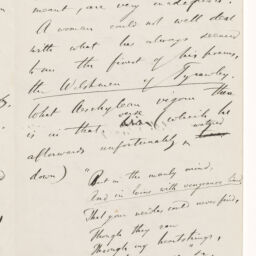 meant, are very indefinite.
A woman could not well deal
with what has always seemed
to me the finest of his poems,
the Welshmen of Tyrawley.
What Aeschylean vigour there
is in that, verse (which he
afterwards unfortunately watered
down) "But in the manly mind,
And in loins with vengeance lined,
That your needles could never find,
Though they ran
Through my heartstrings,